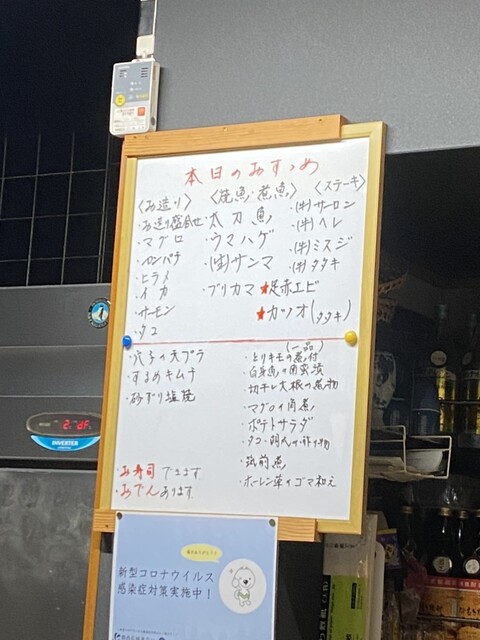 本日のおすゝめ
〈お造り〉
・お造り盛合せ
・マグロ
・カンパチ
・ヒラメ
・イカ
・サーモン
・タコ
〈焼魚・煮魚〉
太刀魚
・ウマハゲ
・(生)サンマ
・ブリカマ
★足赤エビ
★カツオ(タタキ)
〈ステーキ〉
・(牛)サーロン
・(牛)ヘレ
・(牛)ミスジ
・(牛)タタキ
・穴子の天プラ
・するめキムチ
・砂ずり塩焼
(一品)
・とりキモの煮付
・白身魚の南蛮漬
・切干し大根の煮物
・マグロの角煮
・ポテトサラダ
・タコ・胡瓜の酢の物
・筑前煮
・ホーレン草のゴマ和え
・お寿司できます
・おでんあります。
INVERTER
新型コロナウイルス
感染症対策実施中！